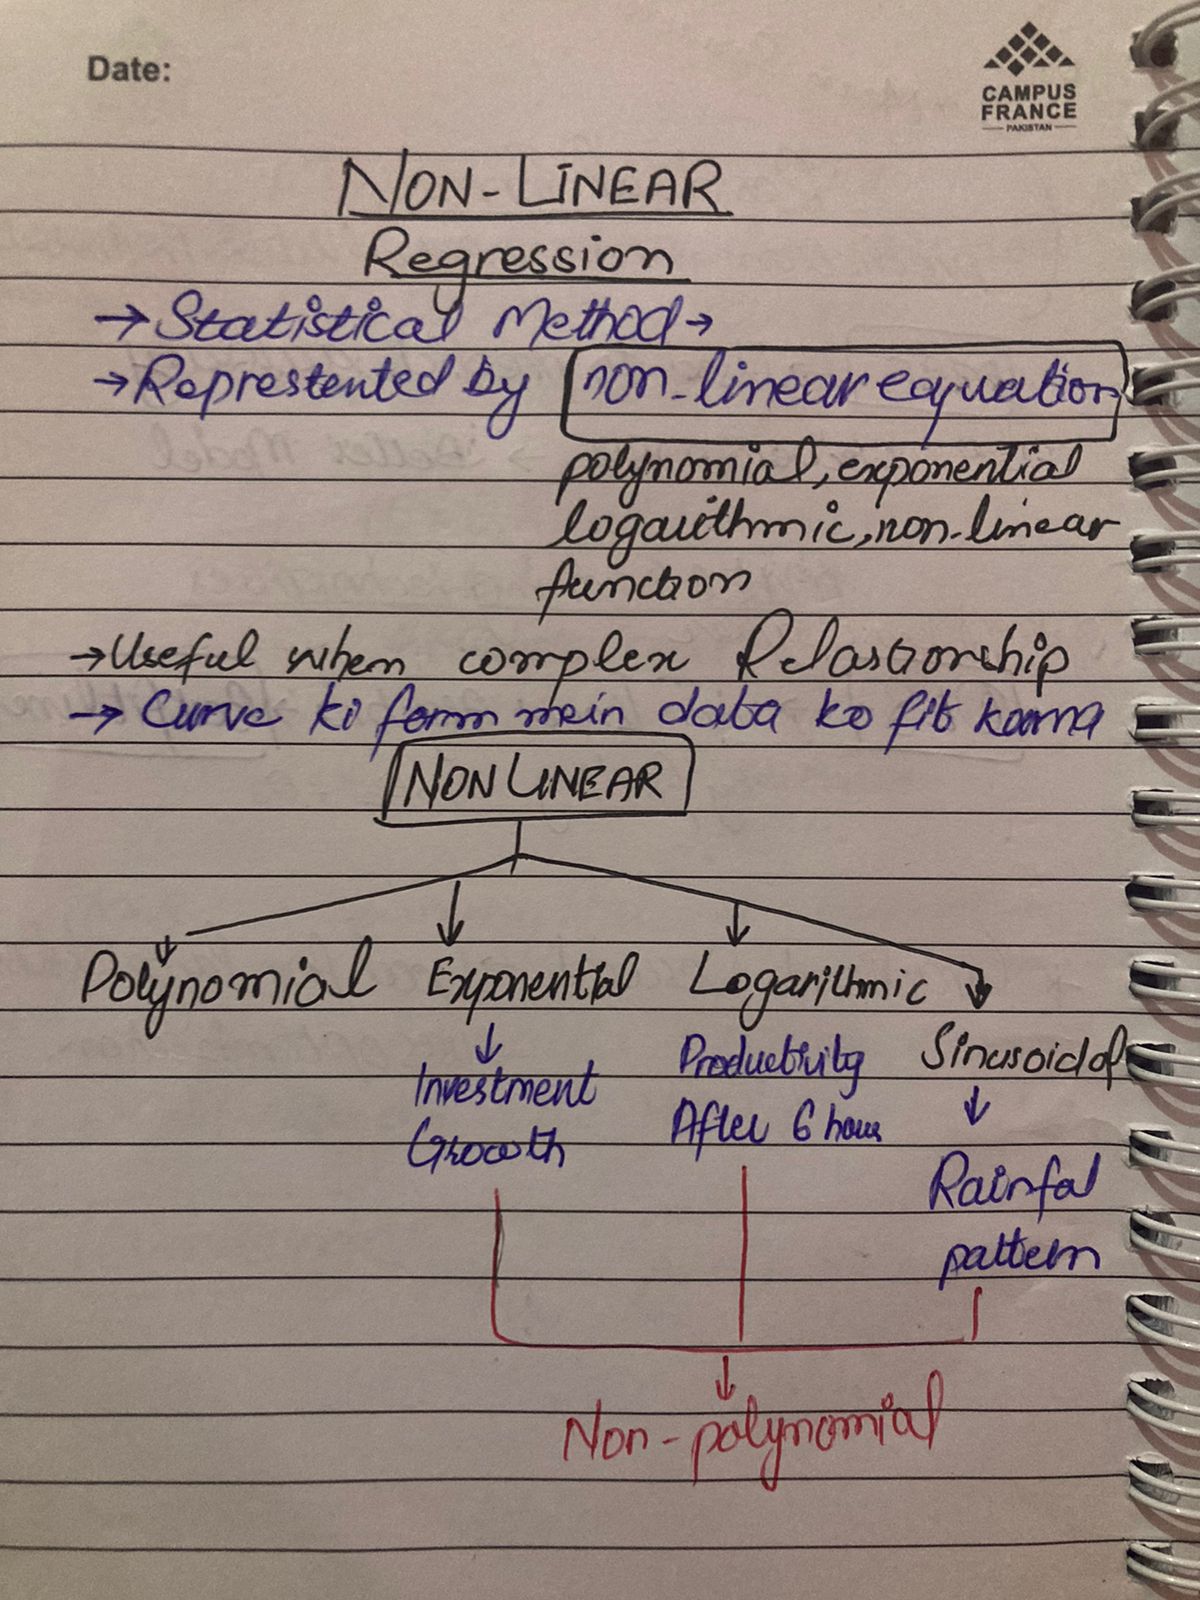 Date:
CAMPUS
FRANCE
PAKISTAN
NON-LINEAR
Regression
→ Statistical Method →
→ Represtented by non-linear equation
polynomial, exponential
logarithmic, non-linear
function
→ Useful when complex Relastionship
→ Curve ki form mein data ko fit karna
NON LINEAR
Polynomial Exponential Logarithmic
Sinusoidal
Investment
Growth
Productivity
After 6 hour
Rainfal
pattern
Non-polynomial